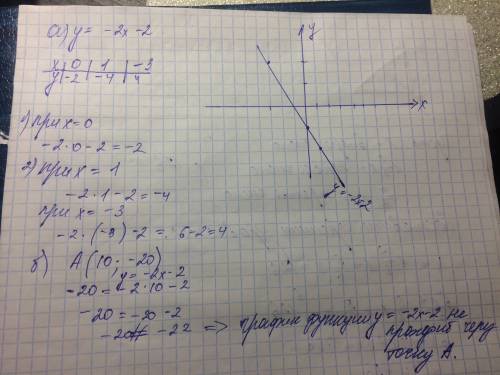 а) y = -2x - 2
x | 0 | 1 | -3
y | -2 | -4 | 4
1) при x = 0
-2·0-2 = -2
2) при x = 1
-2·1-2 = -4
при x = -3
-2·(-3)-2 = 6-2=4.
y
x
y=-2x2
б) A(10; -20)
y = -2x-2
-20 = -2·10-2
-20 = -20 -2
-20 ≠ -22 => график функции y = -2x-2 не
проходит через
точку A.